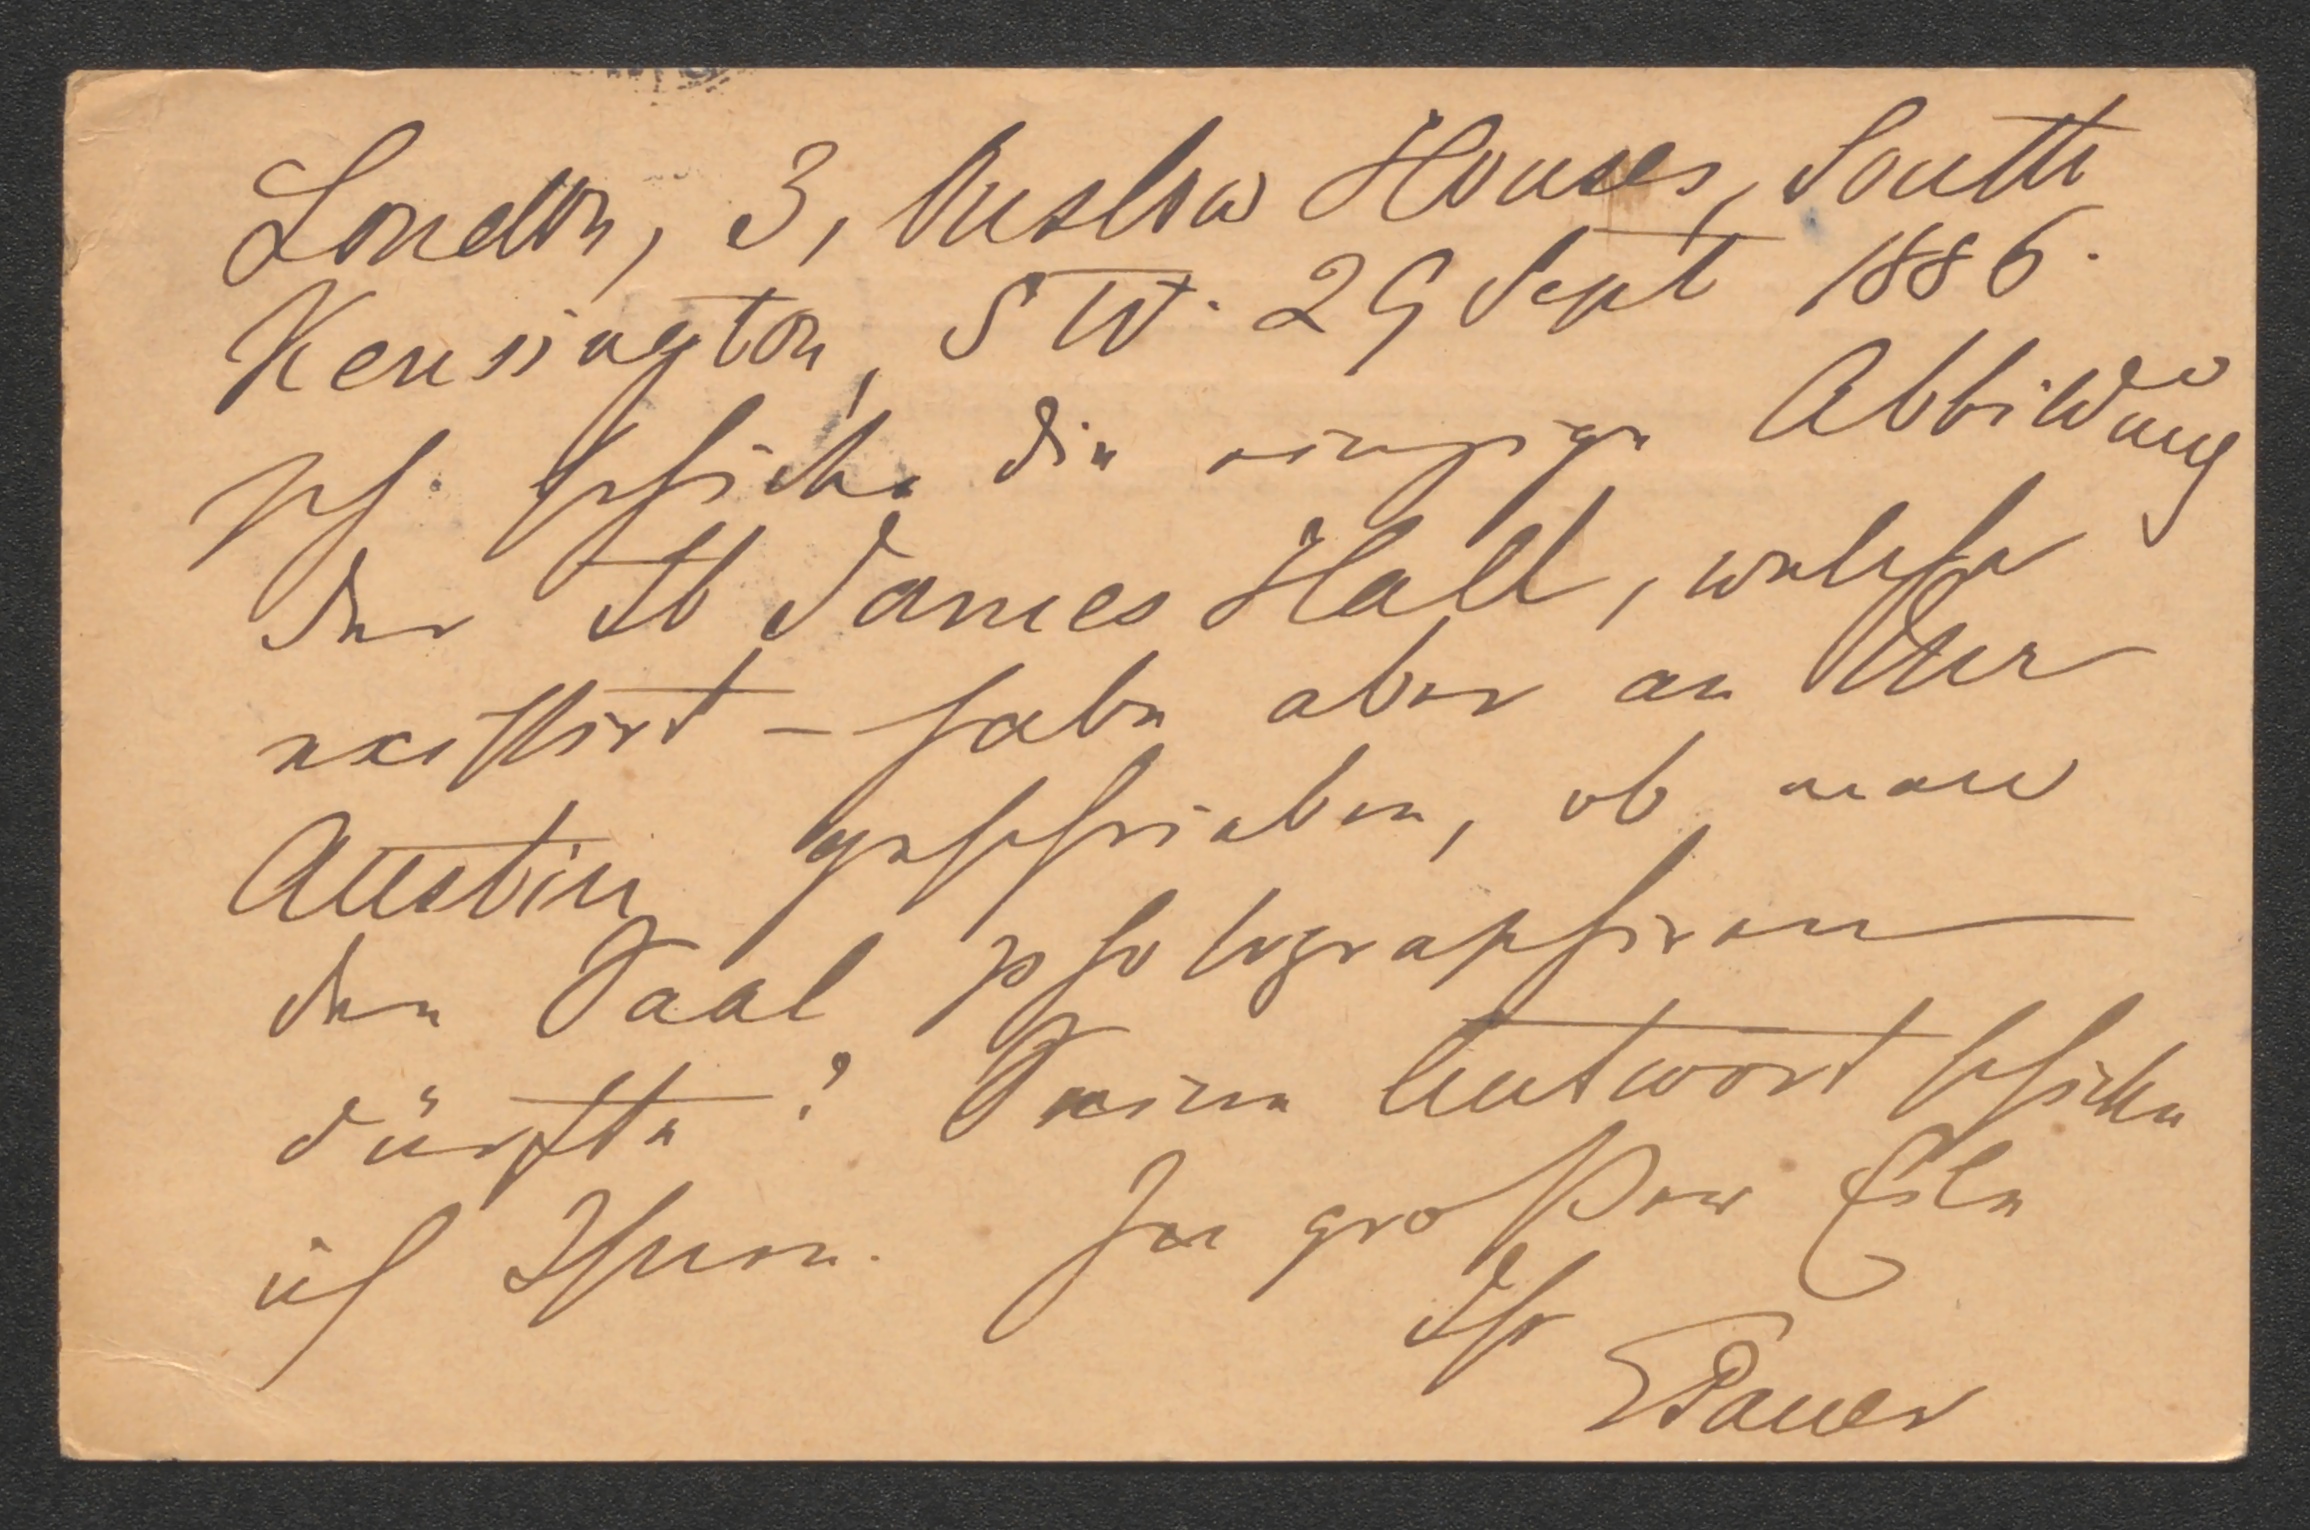 London, 3, Onslow Houses, South
Kensington, SW. 29 Sept 1886.
Ich schicke die einzige Abbildung
der St James Hall, welche
existirt – habe aber an Mr
Austin geschrieben, ob man
den Saal photographiren
dürfte? Seine Antwort schicke
ich Ihnen. In großer Eile
Ihr
EPauer